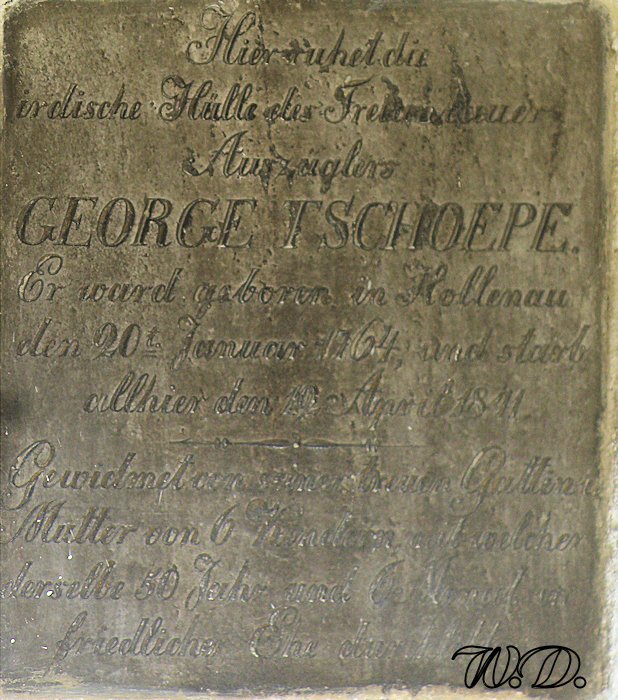 Hier ruhet die
irdische Hülle des Freienbauer
Auszüglers
GEORGE TSCHOEPE.
Er ward geboren in Kollenau
den 20t. Januar 1764, und starb
allhier den April 1841.
Gewidmet von seiner treuen Gattin u
Mutter von 6 Kindern, mit welcher
derselbe 50 Jahr und 6 in
friedlicher Ehe
W.D.